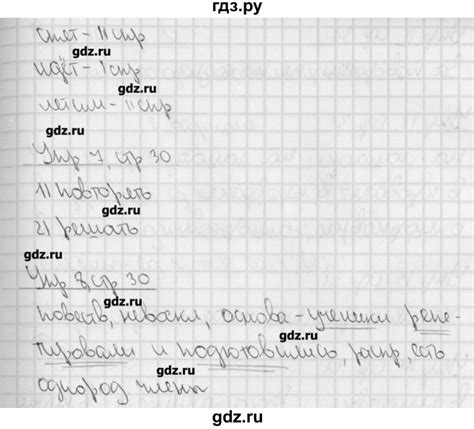 гдз.ру
спят - II спр
gdz.ru
идёт - I спр
gdz.ru
летим - II спр
gdz.ru
Упр 7, стр 30
gdz.ru
1) повторять
gdz.ru
2) решать
gdz.ru
Упр 8, стр 30
gdz.ru
повеств, невоскл, основа - ученики репе-
gdz.ru
тировали и подготовились, распр, есть
gdz.ru
однород члены
gdz.ru